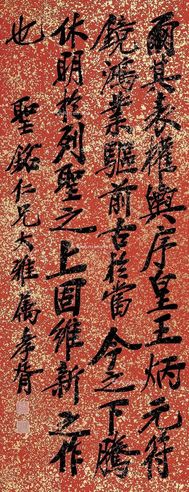 爾其表權輿序皇王炳元符
鏡鴻業驅前古於當今之下騰
休明於列聖之上固維新之作
也
聖銘仁兄大雅属孝胥